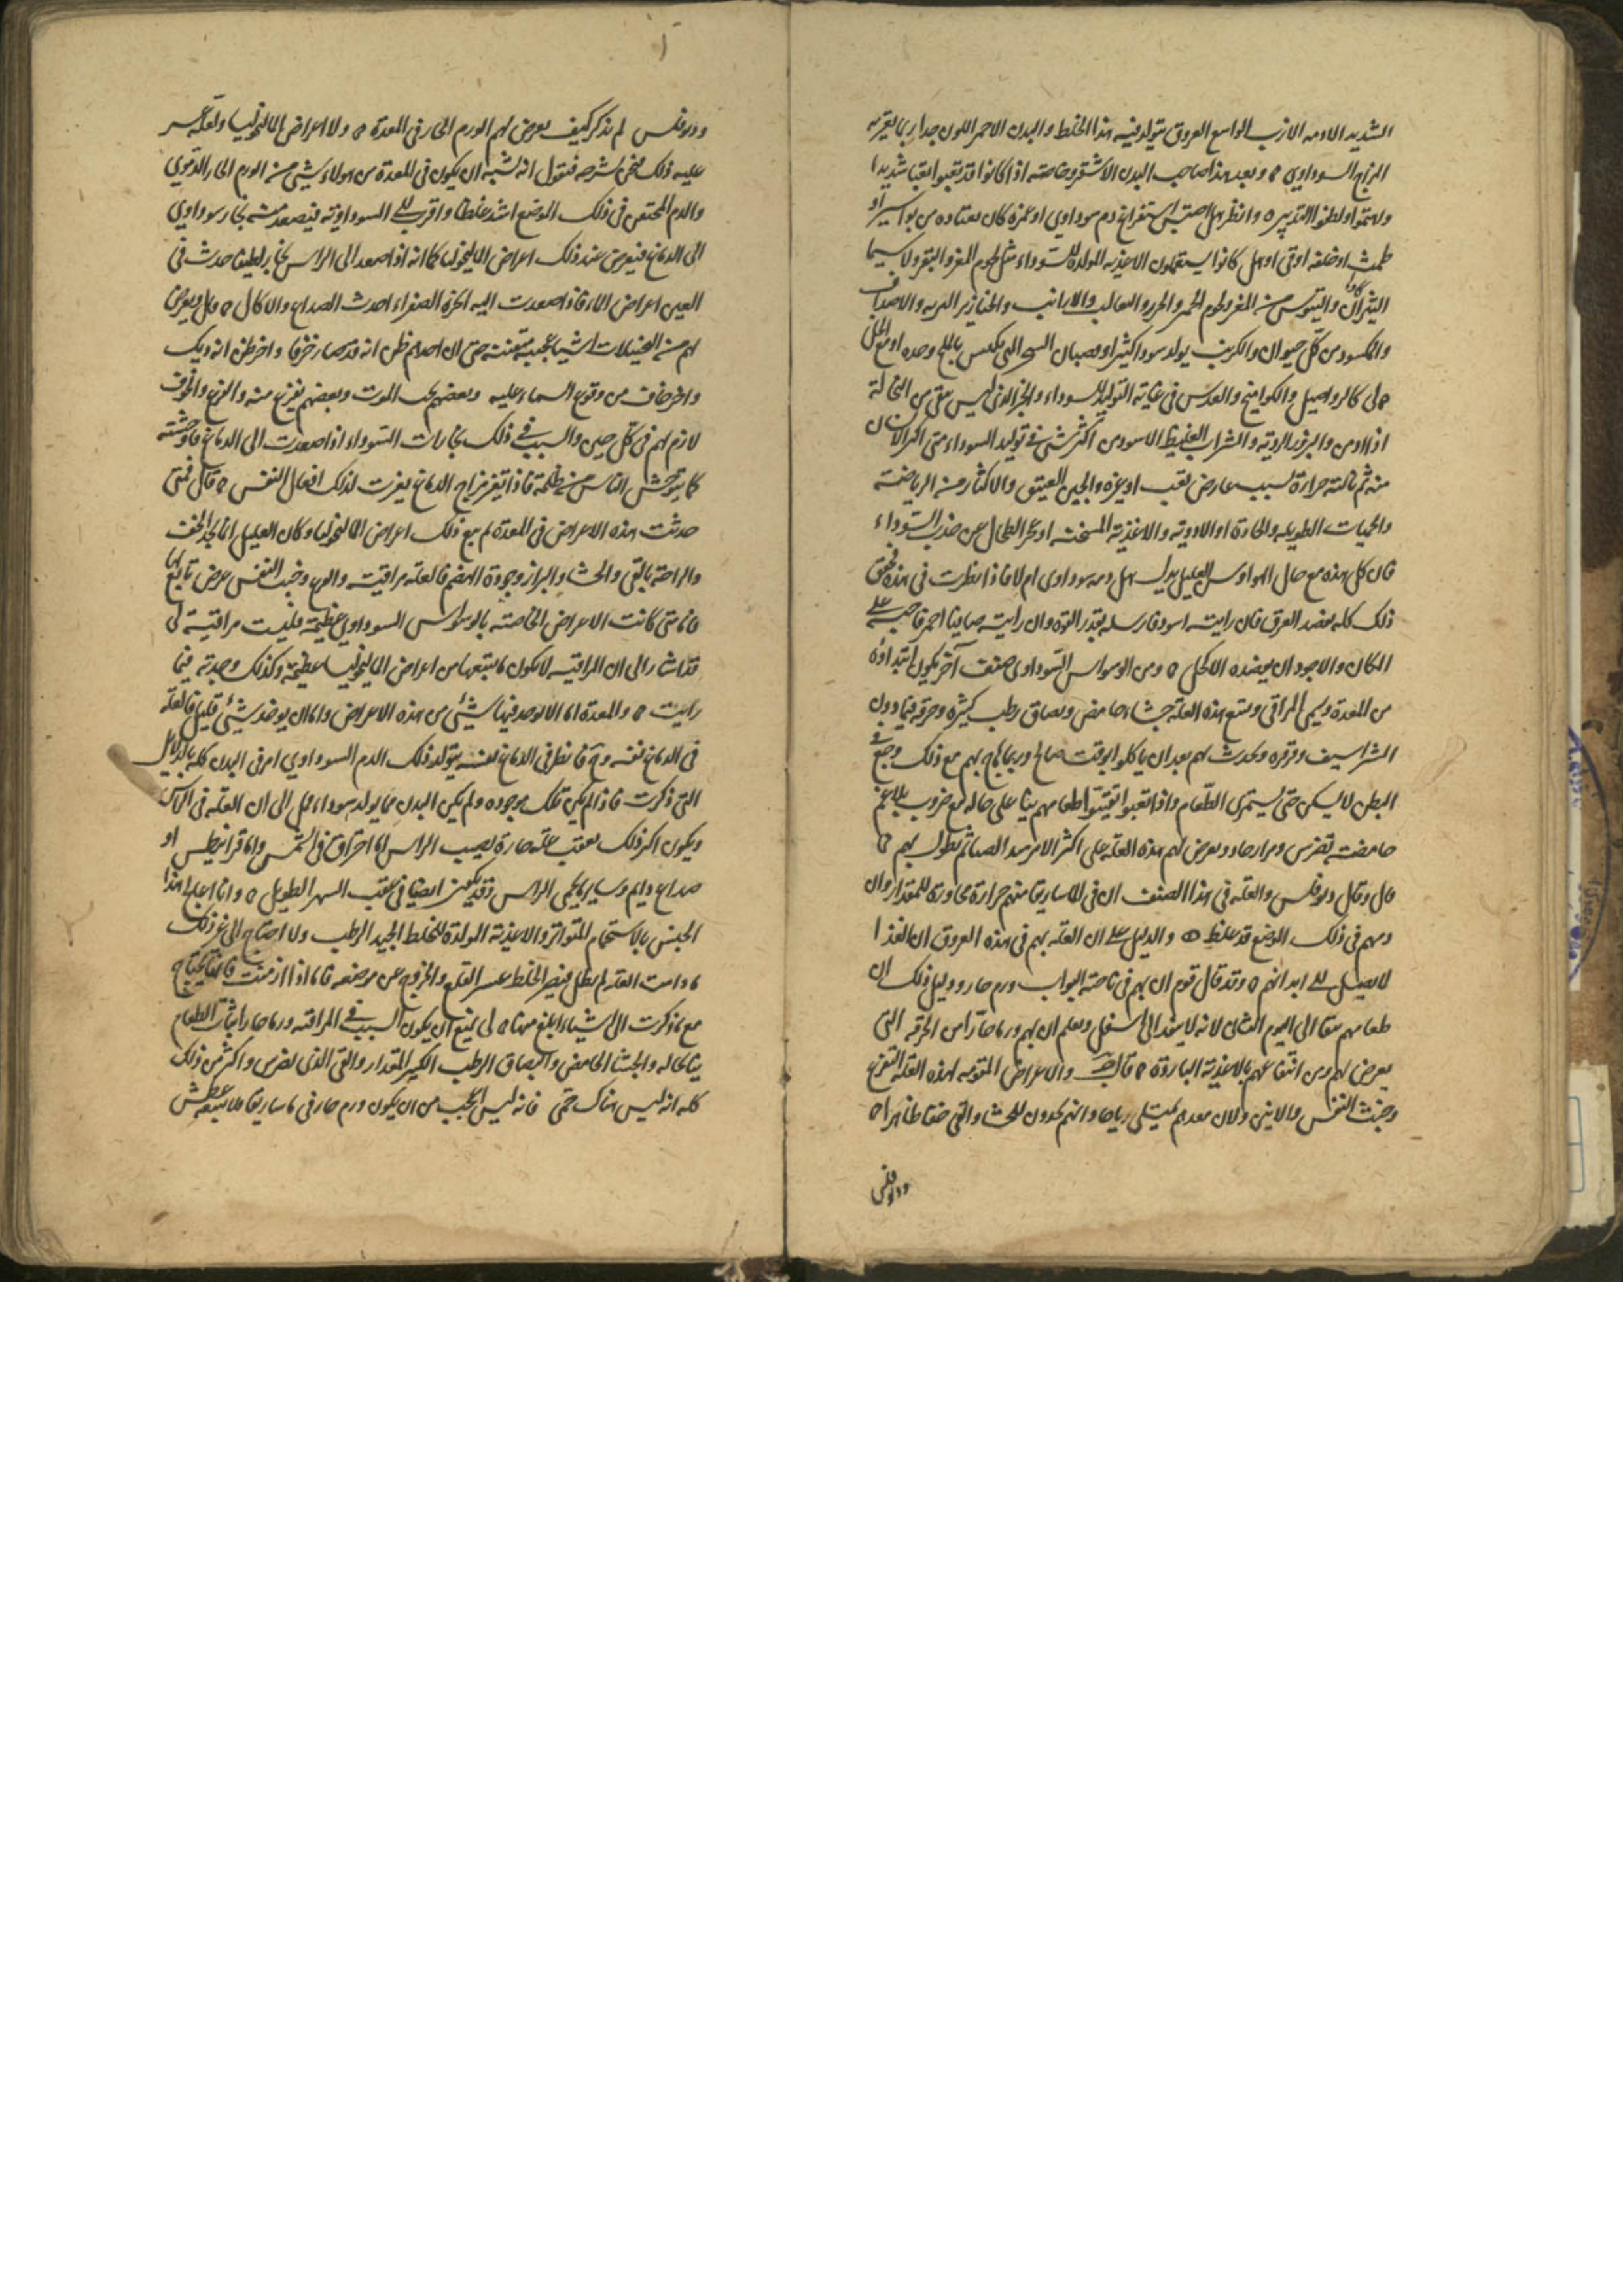 الشديد الادمه الازب الواسع العروق يتولد فيه هذا الخلط والبدن الاحمر اللون جدا ربما يقرب
المزاج السوداوي ه وبعد هذا صاحب البدن الاشقر وخاصته اذا كانوا قد تعبوا تعبا شديدا
ولهتموا ولطفوا التدبير ه وانظر هل احتبس استفراغ دم سوداوي او غيره كان يعتاده من بواسير او
طمث او خلفه او قي او هل كانوا يستعملون الاغذيه المولده للسوداء مثل لحوم المعز والبقر ولا سيما
الثيران والتيوس من المعز ولحوم الحمر والثعالب والارانب والخنازير البريه والاصداف
والمكسود من كل حيوان والكرنب يولد سودا كثيرا وقضبان الشجر التي تكبس بالملح وحده او مع الخل
والكوامخ والعدس في غاية التوليد للسوداء والخبز الذي ليس بنقي من النخالة
اذا ادمن والبزور الرديه والشراب الغليظ الاسود من اكثر شي في توليد السوداء متى اكثر الانسان
منه ثم نالته حرارة بسبب عارض تعب او غيره والجبن العتيق والاكثار من الرياضة
والحميات الطويله والحارة او الادويه والاغذية المسخنه او عجز الطحال عن جذب السوداء
فان كل هذه مع حال الهوا وسل العليل يدل هل دمه سوداوى ام لا فاذا نظرت في هذه فحقق
ذلك كله بفصد العرق فان رايته اسود فارسله بقدر القوة وان رايته صافيا احمر فاحبسه على
المكان والاجود ان يفصده الاكحل ه ومن الوسواس السوداوى صنف آخر يكون ابتداؤه
من المعدة ويسمى المراقي ويتبع هذه العله جشاء حامض وبصاق رطب كثير وحرقه فيما دون
الشراسيف وقرقره ويحدث لهم بعد ان ياكلوا بوقت صالح وربما هاج بهم مع ذلك وجع في
البطن لا يسكن حتى يستمرى الطعام واذا تعبوا تقيئوا طعامهم نيا على حاله مع ضروب بلاغم
حامضة تضرس ومرار حاد ويعرض لهم هذه العله على اكثر الامر منذ الصبا ثم تطول بهم
قال وقال ديوقلس والعله في هذا الصنف ان في الماساريقا منهم حرارة مجاوزة للمقدار وان
دمهم في ذلك الموضع قد غلظ ه والدليل على ان العله بهم في هذه العروق ان الغذا
لا يصل الى ابدانهم ه وقد قال قوم ان بهم في ناحية البواب ورم حار ودليل ذلك ان
طعامهم يبقا الى اليوم الثانى لانه لا ينفذ الى اسفل ويعلم ان بهم ورما حارا من الحرقه التي
يعرض لهم ومن انتفاعهم بالاغذية الباردة ه قال ج والاعراض المقومه لهذه العلة التفزع
وخبث النفس والانين ولان معدهم تمتلى رياحا وانهم يجدون للجشا والقي خفا ظاهرا ه
وديوقلس
وديوقلس لم يذكر كيف يعرض لهم الورم الحار في المعدة ه ولا اعراض المالنخوليا ولعله عسر
عليه ذلك فنحن نشرحه فنقول انه يشبه ان يكون في المعدة من هولاء شيئ من الورم الحار الدموي
والدم المحتقن في ذلك الموضع اشد غلظا واقرب الى السوداويه فيصعد منه بخار سوداوي
الى الدماغ فيعرض عند ذلك اعراض الماليخوليا كما انه اذا صعد الى الراس بخار لطيف حدث في
العين اعراض الماء فاذا صعدت اليه ابخرة الصفراء احدث الصداع والاكال ه قال ويعرض
لهم من التخيلات اشيا عجيبه متفننه حتى ان احدهم ظن انه قد صار خزفا واخر ظن انه ديك
واخر خاف من وقوع السماء عليه وبعضهم يحب الموت وبعضهم يفزع منه والفزع والخوف
لازم لهم في كل حين والسبب في ذلك بخارات السوداء اذا صعدت الى الدماغ فاوحشته
كما يتوحش الناس من الظلمة فاذا تغير مزاج الدماغ تغيرت لذلك افعال النفس ه قال فمتى
حدثت هذه الاعراض في المعدة ثم تبع ذلك اعراض المالنخوليا وكان العليل انما يجد الخف
والراحة بالقي والجشا والبراز وجودة الهضم فالعله مراقيه والهم وخبث النفس عرض تابع لها
فاما متى كانت الاعراض الخاصه بالوسواس السوداوي عظيمة فليست مراقية لى
قد اشار الى ان المراقيه لا يكون ما يتبعها من اعراض الماليخوليا عظيمة وكذلك وجدته فيما
رايت ه والمعدة اما الا يوجد فيها شيئ من هذه الاعراض واما ان يوجد شيئ قليل فالعلة
في الدماغ نفسه فانظر في الدماغ نفسه يتولد ذلك الدم السوداوي ام في البدن كله بالدلايل
التي ذكرت فاذا لم يكن تلك موجوده ولم يكن البدن مما يولد سوداء فمل الى ان العله في الراس
ويكون اكثر ذلك بعقب علة حارة يصيب الراس اما احتراق في الشمس واما قرانيطس او
صداع دايم وساير ما يحمي الراس وقد يكون ايضا في عقب السهر الطويل ه وانا اعالج هذا
الجنس بالاستحمام المتواتر والاغذية المولدة للخلط الجيد الرطب ولا احتاج الى غير ذلك
ما دامت العله لم تطل فيصير الخلط عسر القلع والخروج من موضعه فاما اذا ازمنت فانها تحتاج
مع ما ذكرت الى اشياء ابلغ منها ه لى ينبغي ان يكون السبب في المراقيه ورما حارا ثبات الطعام
نيا بحاله والجشا الحامض والبصاق الرطب الكثير المقدار والقي الذي يضرس واكثر من ذلك
كله انه ليس هناك حمى فانه ليس يجب من ان يكون ورم حار في ماساريقا فلا يتبعه عطش